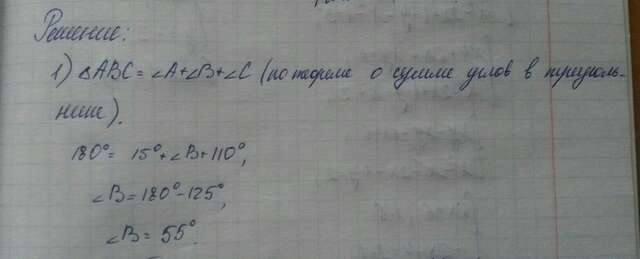 Решение:
1) △ABC = ∠A+∠B+∠C (по теореме о сумме углов в треуголь-
нике).
180° = 15° + ∠B + 110°,
∠B = 180° - 125°,
∠B = 55°.